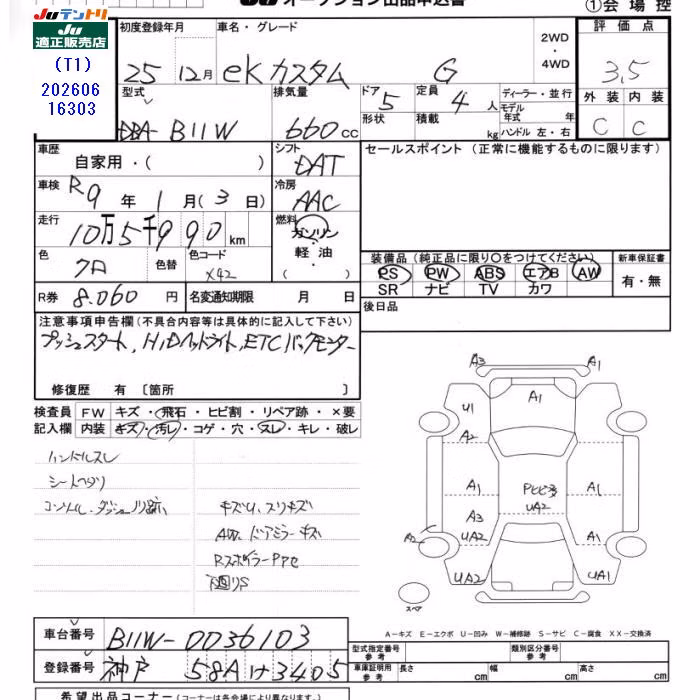 JUテントリ
JU オークション出品申込書
①会場控
JU
適正販売店
(T1)
202606
16303
初度登録年月
25 12月
車名・グレード
eKカスタム G
2WD
・
4WD
評価点
3,5
外装 内装
C C
型式
DBA-B11W
排気量
660cc
ドア 5
形状
定員 4人
積載 kg
ディーラー・並行
モデル年式 年
ハンドル 左・右
車歴
自家用・( )
シフト
DAT
セールスポイント (正常に機能するものに限ります)
車検
R9年 1月(3日)
冷房
AAC
走行
10万5千990km
燃料
ガソリン
軽油
( )
色
クロ
色替
色コード
X42
装備品 (純正品に限り○をつけてください)
PS PW ABS エアB AW
SR ナビ TV カワ
新車保証書
有・無
R券 8.060円
名変通知期限 月 日
後日品
注意事項申告欄(不具合内容等は具体的に記入して下さい)
プッシュスタート, HIDヘッドライト, ETC バックモニター
修復歴 有 〔箇所 〕
検査員
記入欄
FW キズ・飛石・ヒビ割・リペア跡・×要
内装 キズ・汚レ・コゲ・穴・スレ・キレ・破レ
ハンドルスレ
シートヘタリ
キズU、スリキズ
AW、ドアミラーキズ
下廻りS
A3 A1
A1
U1
A2
A1
A1
A3
UA2
UA2
A2
A1
UA2
UA1
スペア
A-キズ E-エクボ U-凹み W-補修跡 S-サビ C-腐食 XX-交換済
車台番号
B11W-0036103
登録番号
神戸 58A け 3405
型式指定番号
参考
類別区分番号
参考
車庫証明用
参考
長さ cm
幅 cm
高さ cm
希望出品コーナー(コーナーは各会場により異なります。)